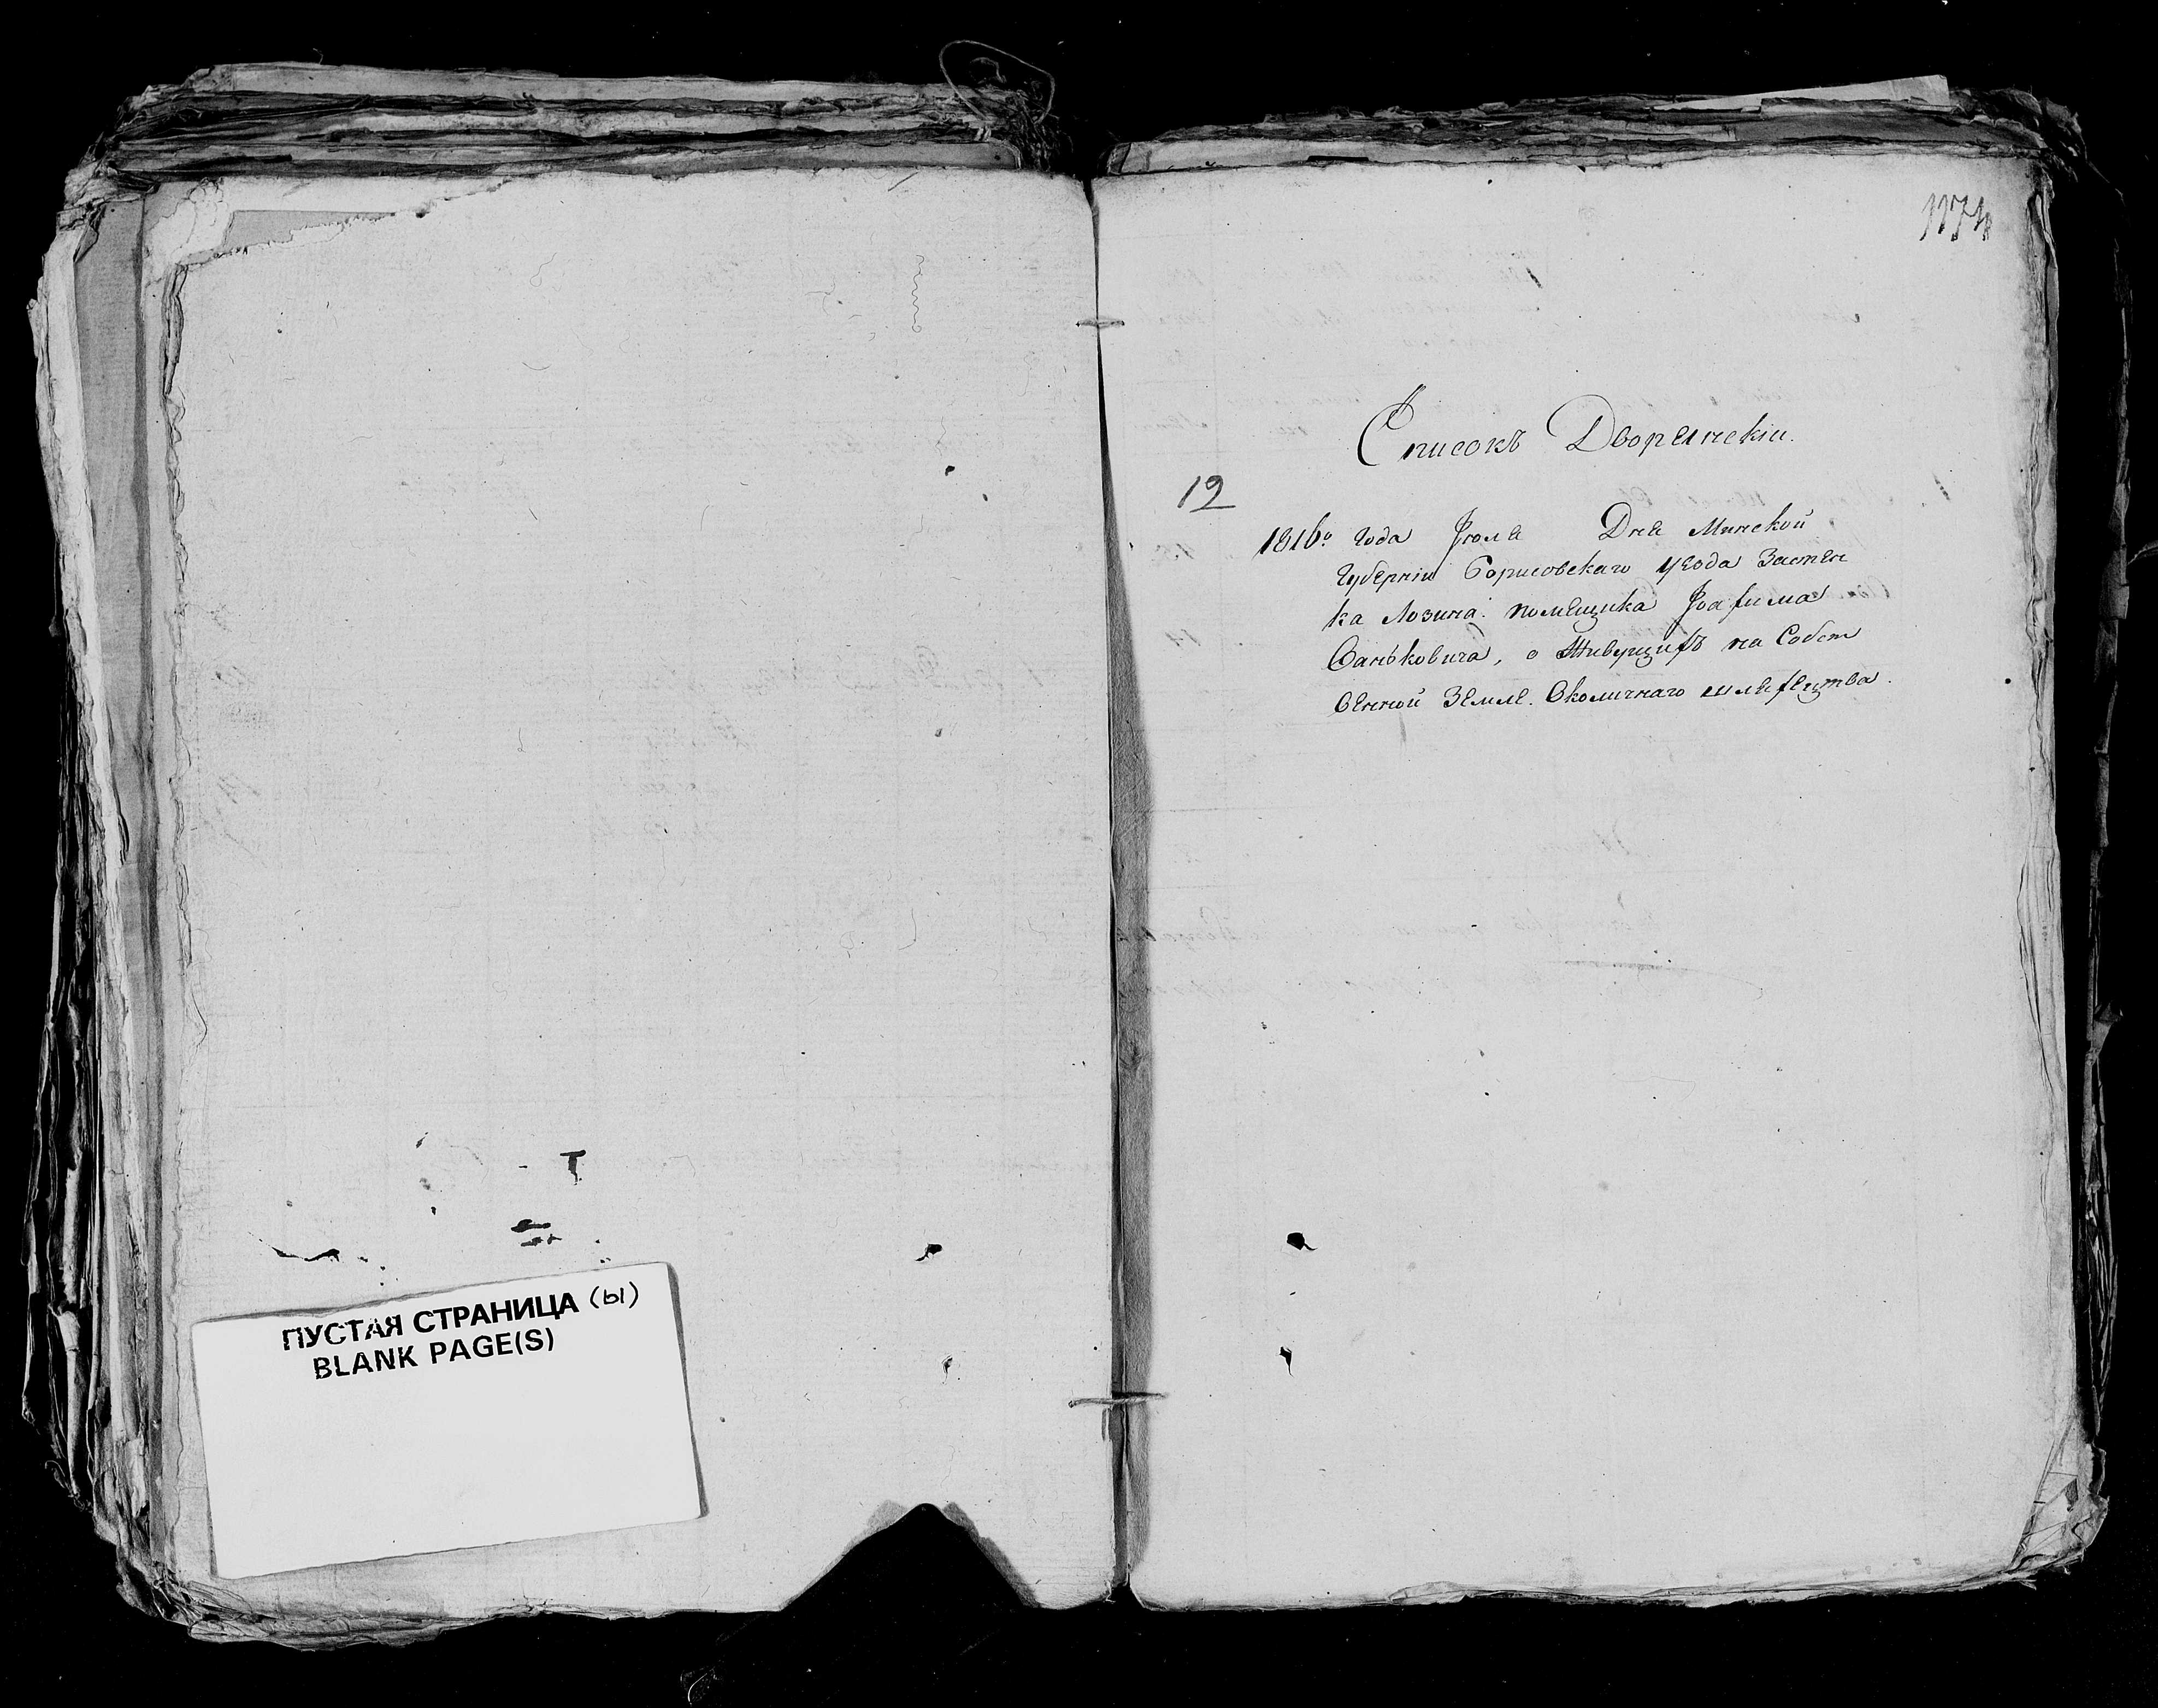 ПУСТАЯ СТРАНИЦА (ы)
BLANK PAGE(S)
1174
Списокъ Дворянскiи.
12
1816го года Июля Дня Минской
Губернiи Борисовскаго уезда Застен
ка Лозина помещика Иоахима
Ваньковича, о Живущихъ на Собст
венной Земле. Околичнаго шляхецтва.